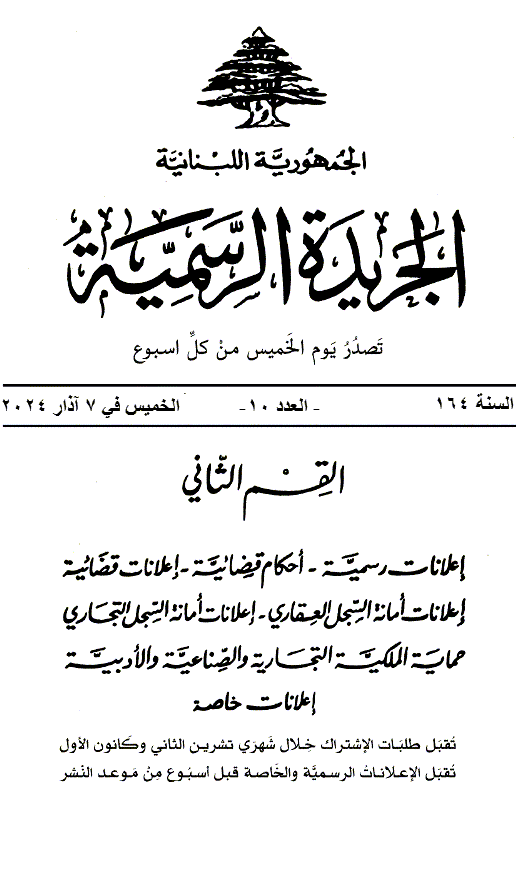 الجُمهُوريَّة اللبْنانيَّة
الجَريدَة الرسَّمِيَّة
تَصدُرُ يَوم الخَميس منْ كلِّ اسبوع
السنة ١٦٤ - العدد ١٠- الخميس في ٧ آذار ٢٠٢٤
القِسْم الثَّاني
إعلانات رسميَّة - أحكام قضائيَّة - إعلانات قضائية
إعلانات أمانة السِّجل العقاري - إعلانات أمانة السِّجل التجاري
حماية الملكيَّة التجارية والصِّناعيَّة والأدبيَّة
إعلانات خاصة
تُقبَل طلبَات الإشتراك خِلال شَهرَي تشرين الثاني وكَانون الأول
تُقبَل الإعلاناتُ الرسميَّة والخَاصة قبل أسبُوع مِنْ مَوعد النَشر